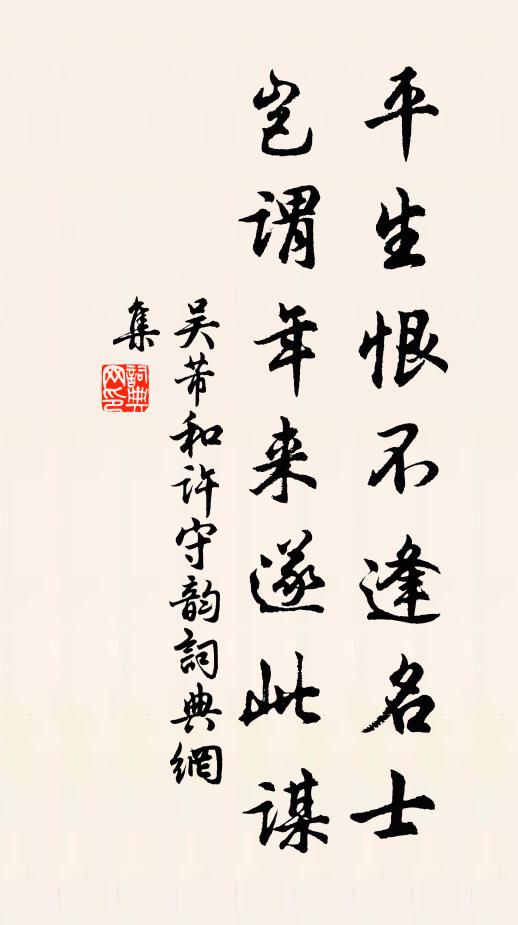 平生恨不逢名士
岂谓年来遂此谋
吴芾和许守韵詞典網
集
詞典網印